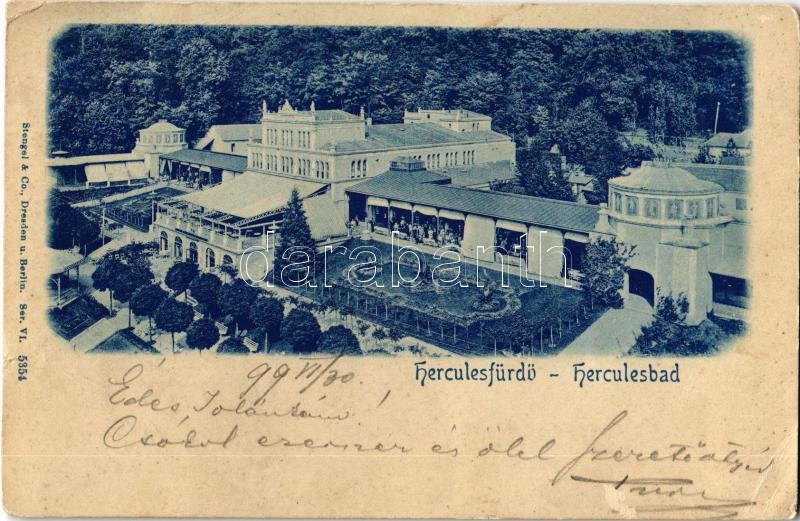 Stengel & Co., Dresden u. Berlin. Ser. VI. 5354
darabanth
Herculesfürdő - Herculesbad
99 VI/30
Édes Jolánkám!
Csókol ezerszer és ölel